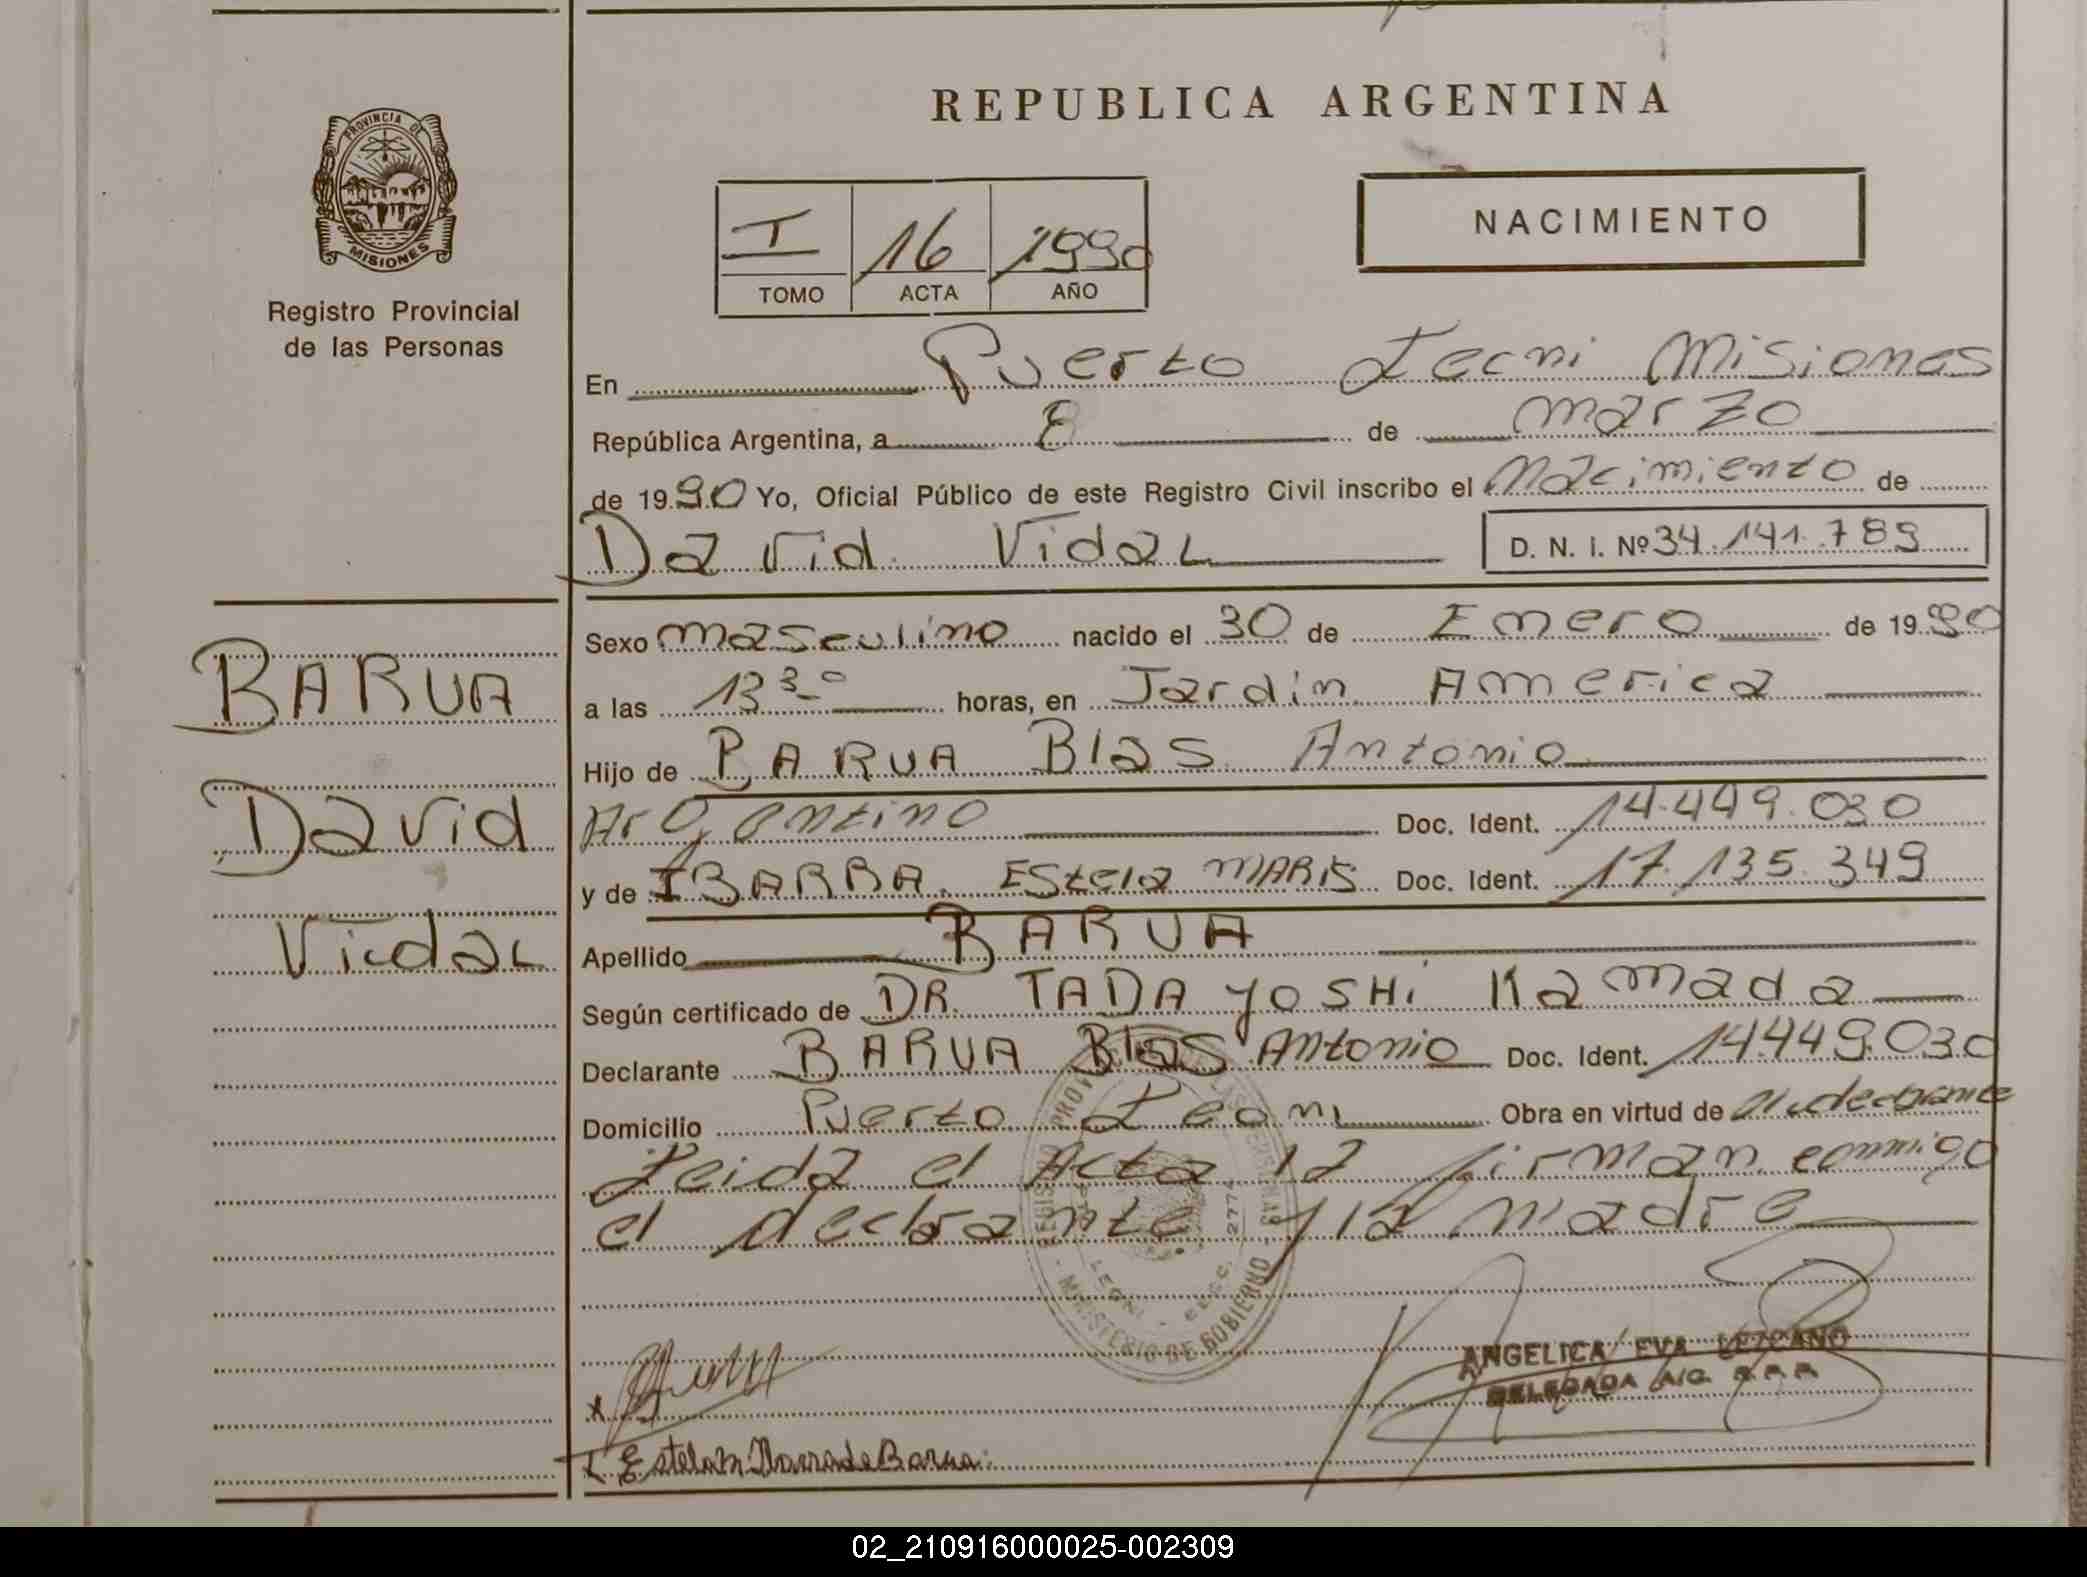 REPUBLICA ARGENTINA
PROVINCIA DE
MISIONES
Registro Provincial
de las Personas
NACIMIENTO
I 16 1990
TOMO ACTA AÑO
En Puerto Leoni Misiones
República Argentina, a 8 de marzo
de 1990 Yo, Oficial Público de este Registro Civil inscribo el Nacimiento de
David Vidal D. N. I. Nº 34.141.789
Sexo masculino nacido el 30 de Enero de 1990
a las 13 30 horas, en Jardin America
Hijo de BARUA Blas Antonio
Argentino Doc. Ident. 14.449.030
y de IBARRA Estela MARIS Doc. Ident. 17.135.349
Apellido BARUA
Según certificado de DR. TADAYOSHi Kamada
Declarante BARUA Blas Antonio Doc. Ident. 14.449.030
Domicilio Puerto Leoni Obra en virtud de declarante
Leida el Acta la firman conmigo
el declarante y la madre
BARUA
David
Vidal
REGISTRO PROVINCIAL DE LAS PERSONAS
LEONI 2774
MINISTERIO DE GOBIERNO
ANGELICA EVA LEZCANO
DELEGADA A/C R.P.P.
Estela M Ibarra de Barua
02_210916000025-002309